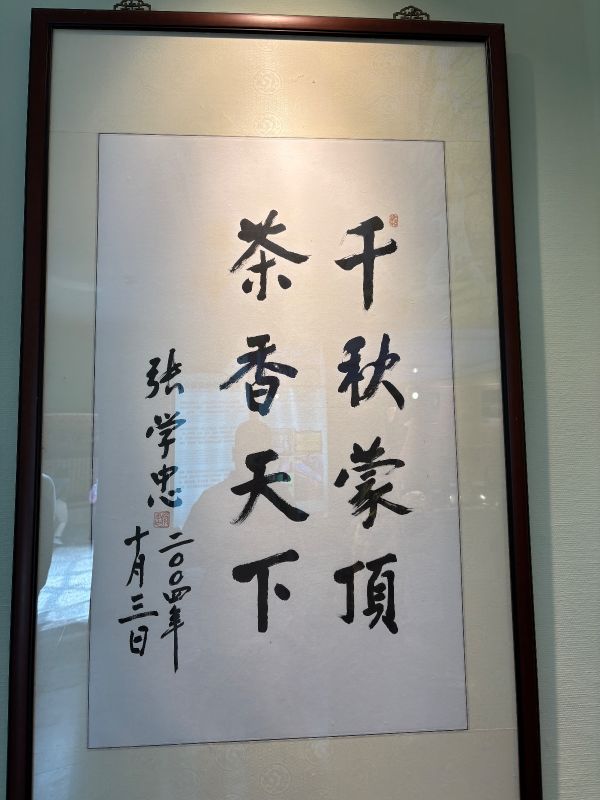 千秋蒙頂
茶香天下
张学忠
二〇〇四年
十月三日